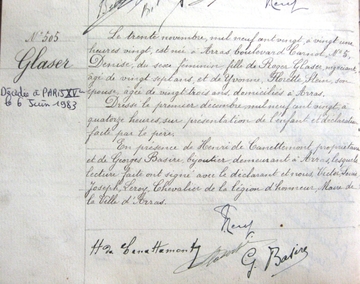 N° 505
Glaser
Décédée à PARIS XV
le 6 Juin 1983
Le trente novembre, mil neuf cent vingt, à vingt une
heures vingt, est née à Arras boulevard Carnot, N° 5,
Denise, du sexe féminin, fille de Roger Glaser, négociant,
âgé de vingt ans, et de Yvonne, son
épouse, âgée de vingt trois ans, domiciliés à Arras.
Dressé le premier décembre mil neuf cent vingt, à
quatorze heures, sur présentation de l'enfant et déclaration
faite par le père.
En présence de Henri de propriétaire
et de Georges Basère, bijoutier, demeurant à Arras, lesquels
lecture faite ont signé avec le déclarant et nous Victor
Joseph, Leroy, Chevalier de la légion d'honneur, Maire de
la Ville d'Arras.
G. Basère